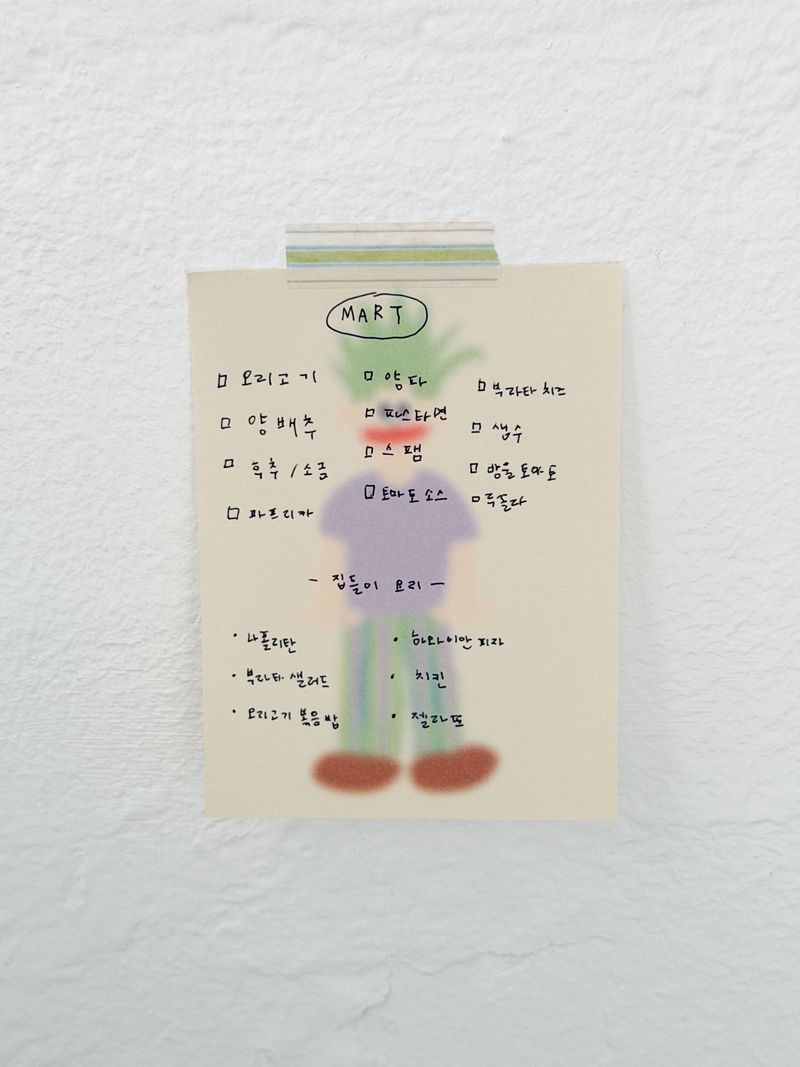 MART
□ 오리고기
□ 양배추
□ 후추/소금
□ 파프리카
□ 양파
□ 파스타면
□ 스팸
□ 토마토소스
□ 부라타치즈
□ 생수
□ 방울토마토
□ 루꼴라
- 집들이 요리 -
• 나폴리탄
• 부라타 샐러드
• 오리고기 볶음밥
• 하와이안 피자
• 치킨
• 젤라또